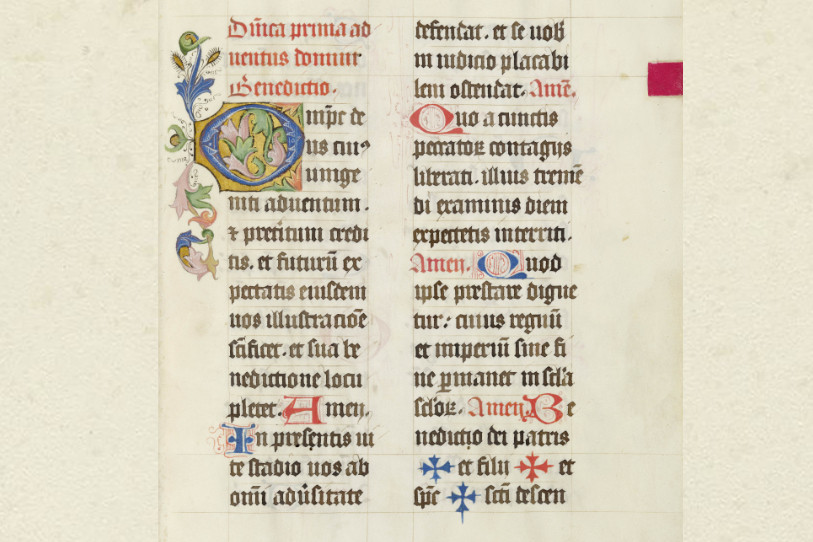 Dn̄ica prima ad
uentus domini
Benedictio.
Omp̄c de
us cuiꝰ
unige
niti aduentum.
⁊ preitum credi
tis. et futurū ex
pectatis eiusdem
uos illustracioē
sc̄ificet. et sua be
nedictione locu
pletet. Amen.
In presentis ui
te stadio uos ab
om̄i adūsitate
defendat. et se uob̄
in iudicio placabi
lem ostendat. Amē.
Quo a cunctis
peccatoꝝ contagijs
liberati. illius tremē
di examinis diem
expectetis interriti.
Amen. Quod
ipse prestare digne
tur: cuius regnū
et imperiū sine fi
ne ꝑmanet in sc̄la
sc̄loꝝ. Amen. Be
nedictio dei patris
✠ et filij ✠ et
sp̄c ✠ sc̄ti descen